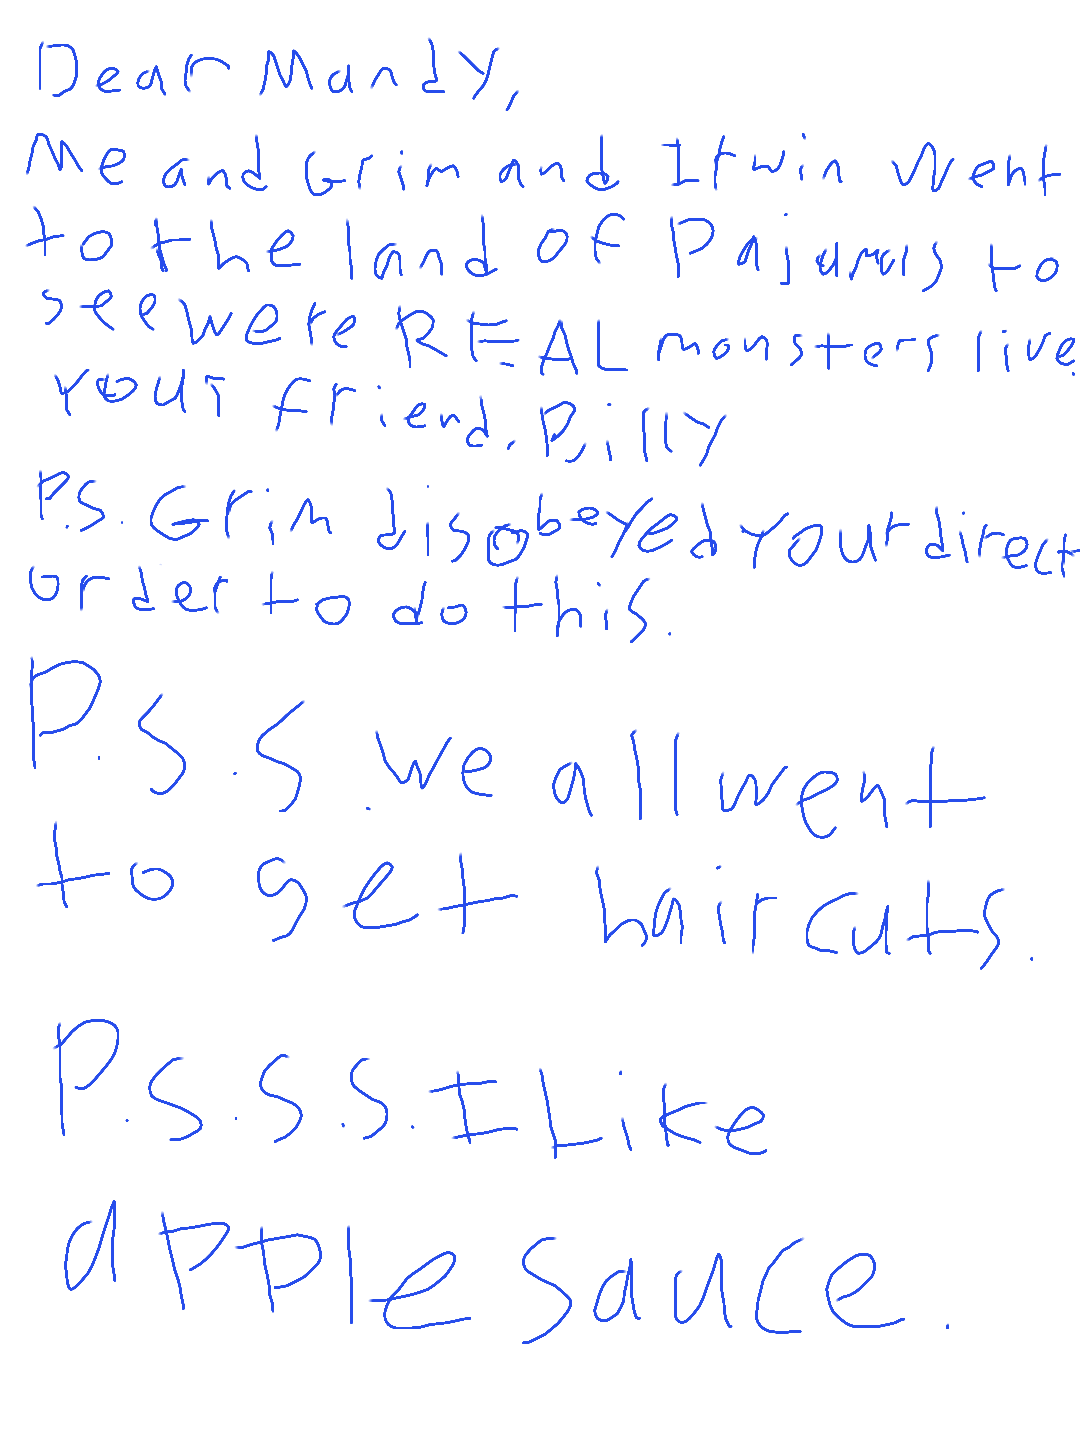 Dear Mandy,
Me and Grim and Irwin went
to the land of Pajamas to
see were REAL monsters live.
Your friend, Billy
P.S. Grim disobeyed your direct
order to do this.
P.S.S. we all went
to get haircuts.
P.S.S.S. I Like
apple sauce.